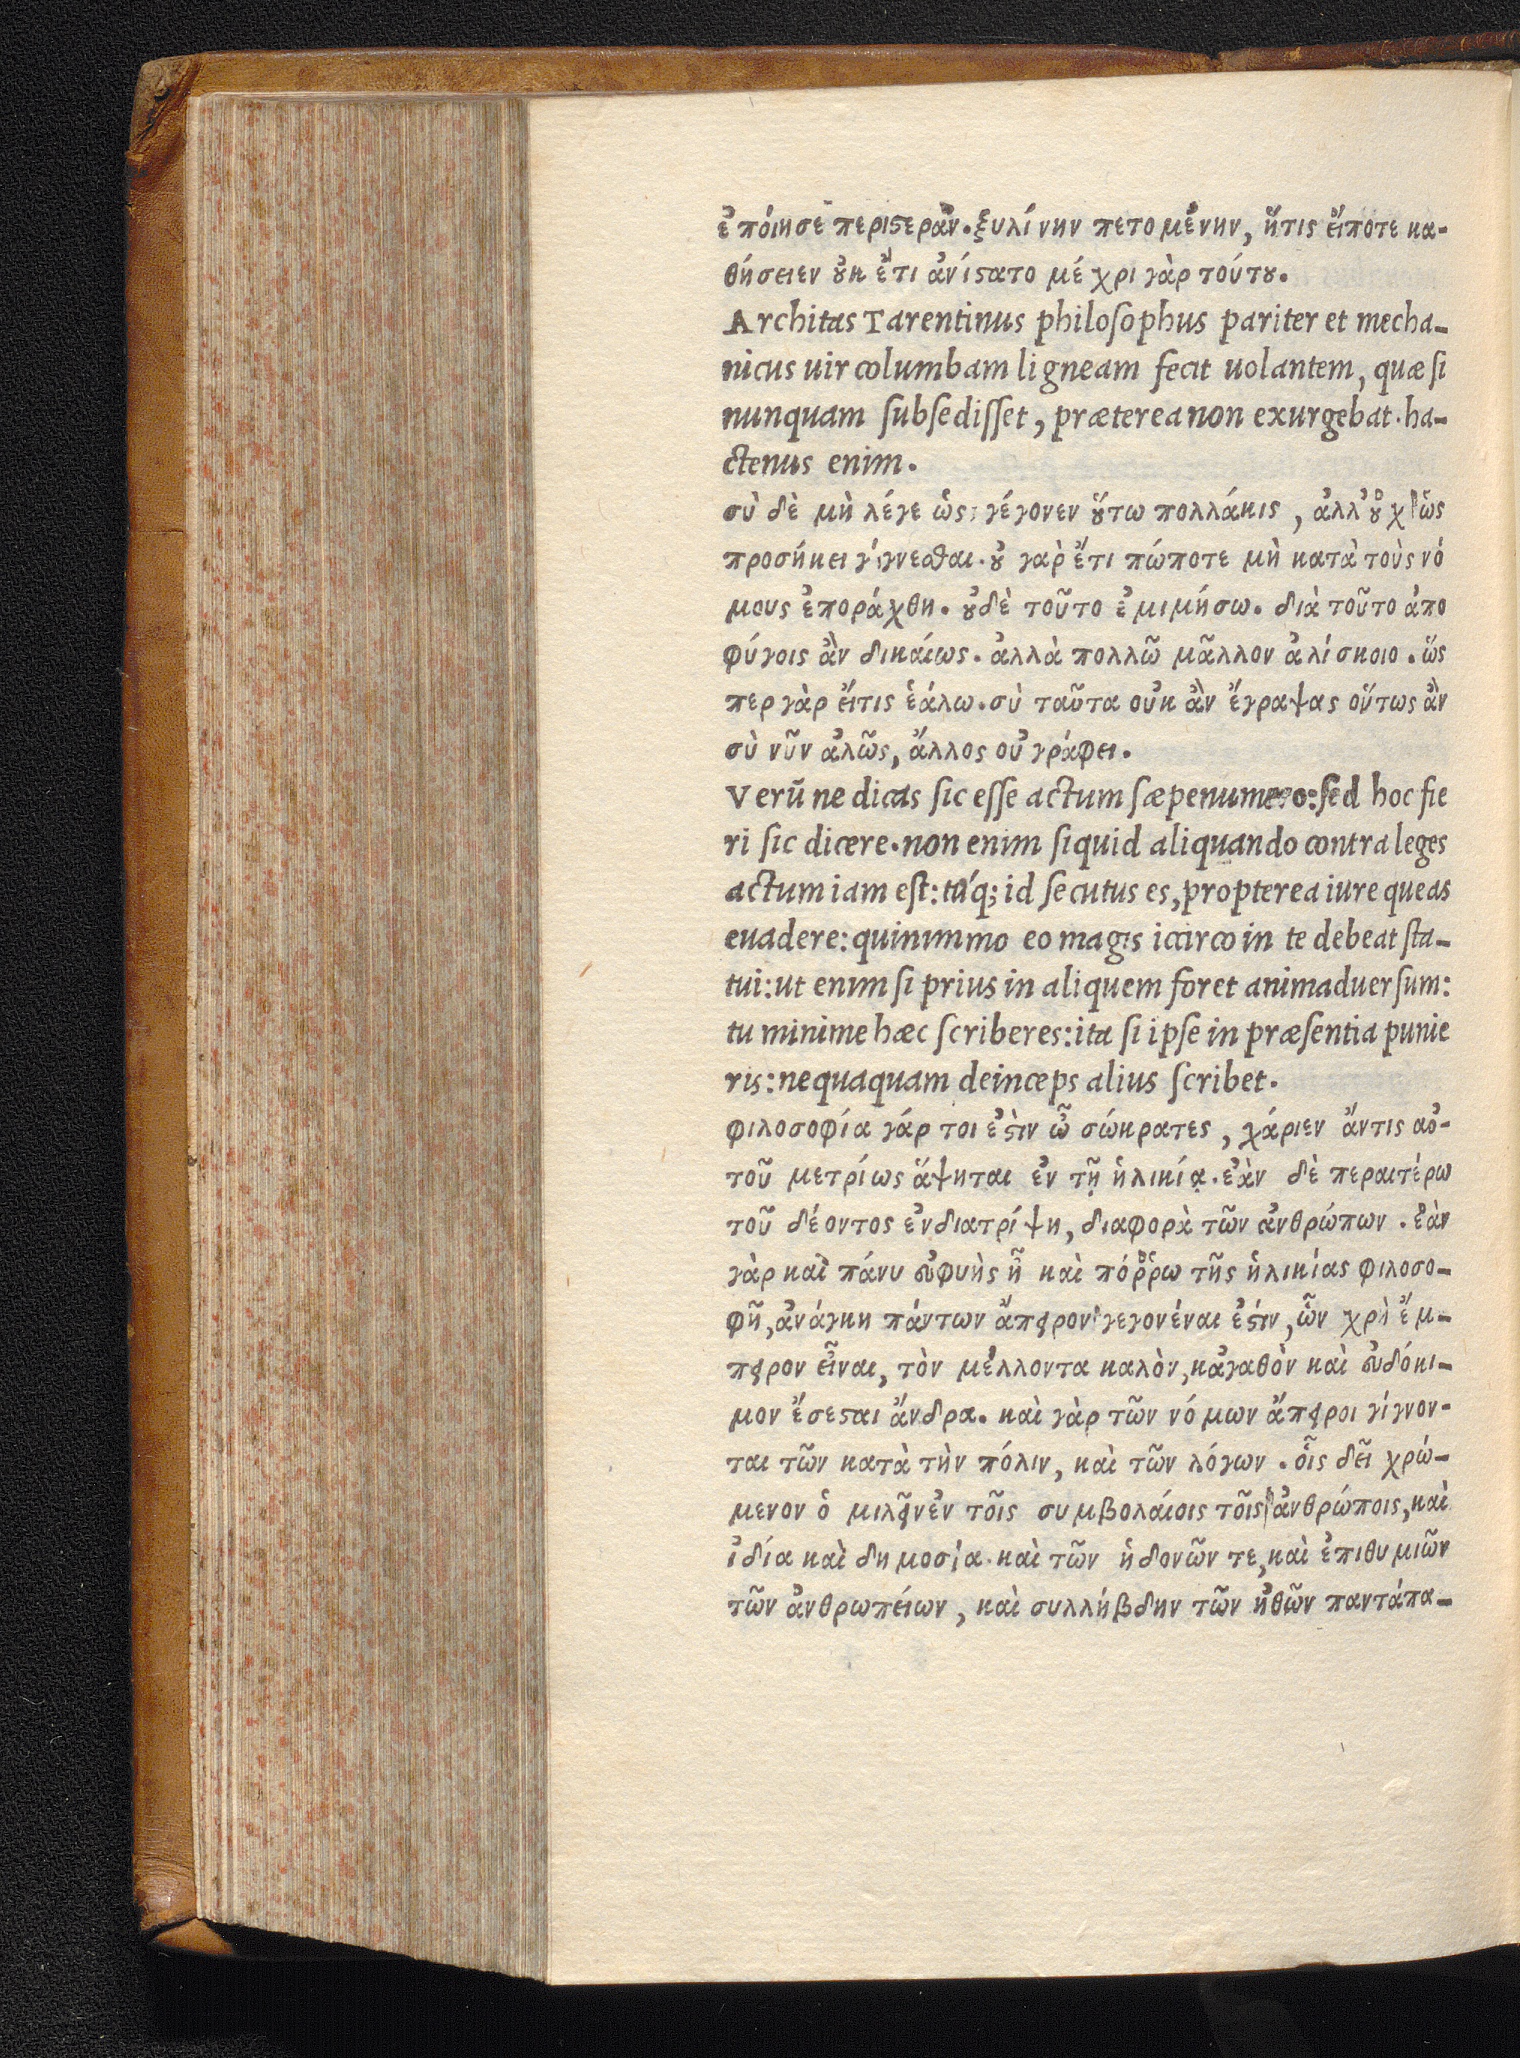 ἐπόιησε περιϛεράν. ξυλίνην πετομένην, ἥτις ἔιποτε κα-
θήσειεν ȣ̓κ ἔτι ἀνίϛατο μέχρι γὰρ τούτȣ.
Architas Tarentinus philoſophus pariter et mecha-
nicus uir columbam ligneam fecit uolantem, quæ ſi
nunquam ſubſediſſet, præterea non exurgebat. ha-
ctenus enim.
σὺ δὲ μὴ λέγε ὡς γέγονεν ȣ̔́τω πολλάκις, ἀλλ' ȣ̓χ ὡς
προσήκει γίγνεσθαι. ȣ̓ γαρ ἔτι πώποτε μὴ κατὰ τοὺς νό
μους ἐποράχθη. ȣ̓δὲ τοῦτο ἐμιμήσω. διὰ τοῦτο ἀπο
φύγοις ἂν δικάιως. ἀλλὰ πολλῶ μᾶλλον ἁλίσκοιο. ὥς
περ γὰρ ἔιτις ἑάλω. σὺ ταῦτα οὐκ ἂν ἔγραψας οὕτως ἂν
σὺ νῦν ἁλῶς, ἄλλος οὐ γράφει.
Verū ne dicas ſic eſſe actum ſæpenumero: ſed hoc fie
ri ſic dicere. non enim ſiquid aliquando contra leges
actum iam eſt: túq; id ſecutus es, propterea iure queas
euadere: quinimmo eo magis iccirco in te debeat ſta-
tui: ut enim ſi prius in aliquem foret animaduerſum:
tu minime hæc ſcriberes: ita ſi ipſe in præſentia punie
ris: nequaquam deinceps alius ſcribet.
φιλοσοφία γάρ τοι ἐϛὶν ὦ σώκρατες, χάριεν ἄντις αὐ-
τοῦ μετρίως ἅψηται ἐν τῇ ἡλικίᾳ. ἐὰν δὲ περαιτέρω
τοῦ δέοντος ἐνδιατρίψη, διαφορὰ τῶν ἀνθρώπων. ἐὰν
γὰρ καὶ πάνυ εὐφυὴς ἦ καὶ πόῤῥω τῆς ἡλικίας φιλοσο-
φῆ, ἀνάγκη πάντων ἄπειρον γεγονέναι ἐϛίν, ὧν χρὴ ἔμ-
πειρον εἶναι, τὸν μέλλοντα καλὸν, κἀγαθὸν καὶ εὐδόκι-
μον ἔσεϛαι ἄνδρα. καὶ γὰρ τῶν νόμων ἄπειροι γίγνον-
ται τῶν κατὰ τὴν πόλιν, καὶ τῶν λόγων. οἷς δεῖ χρώ-
μενον ὁ μιλεῖν ἐν τοῖς συμβολάιοις τοῖς ἀνθρώποις, καὶ
ἰδία καὶ δημοσία. καὶ τῶν ἡδονῶν τε, καὶ ἐπιθυμιῶν
τῶν ἀνθρωπείων, καὶ συλλήβδην τῶν ἠθῶν παντάπα-